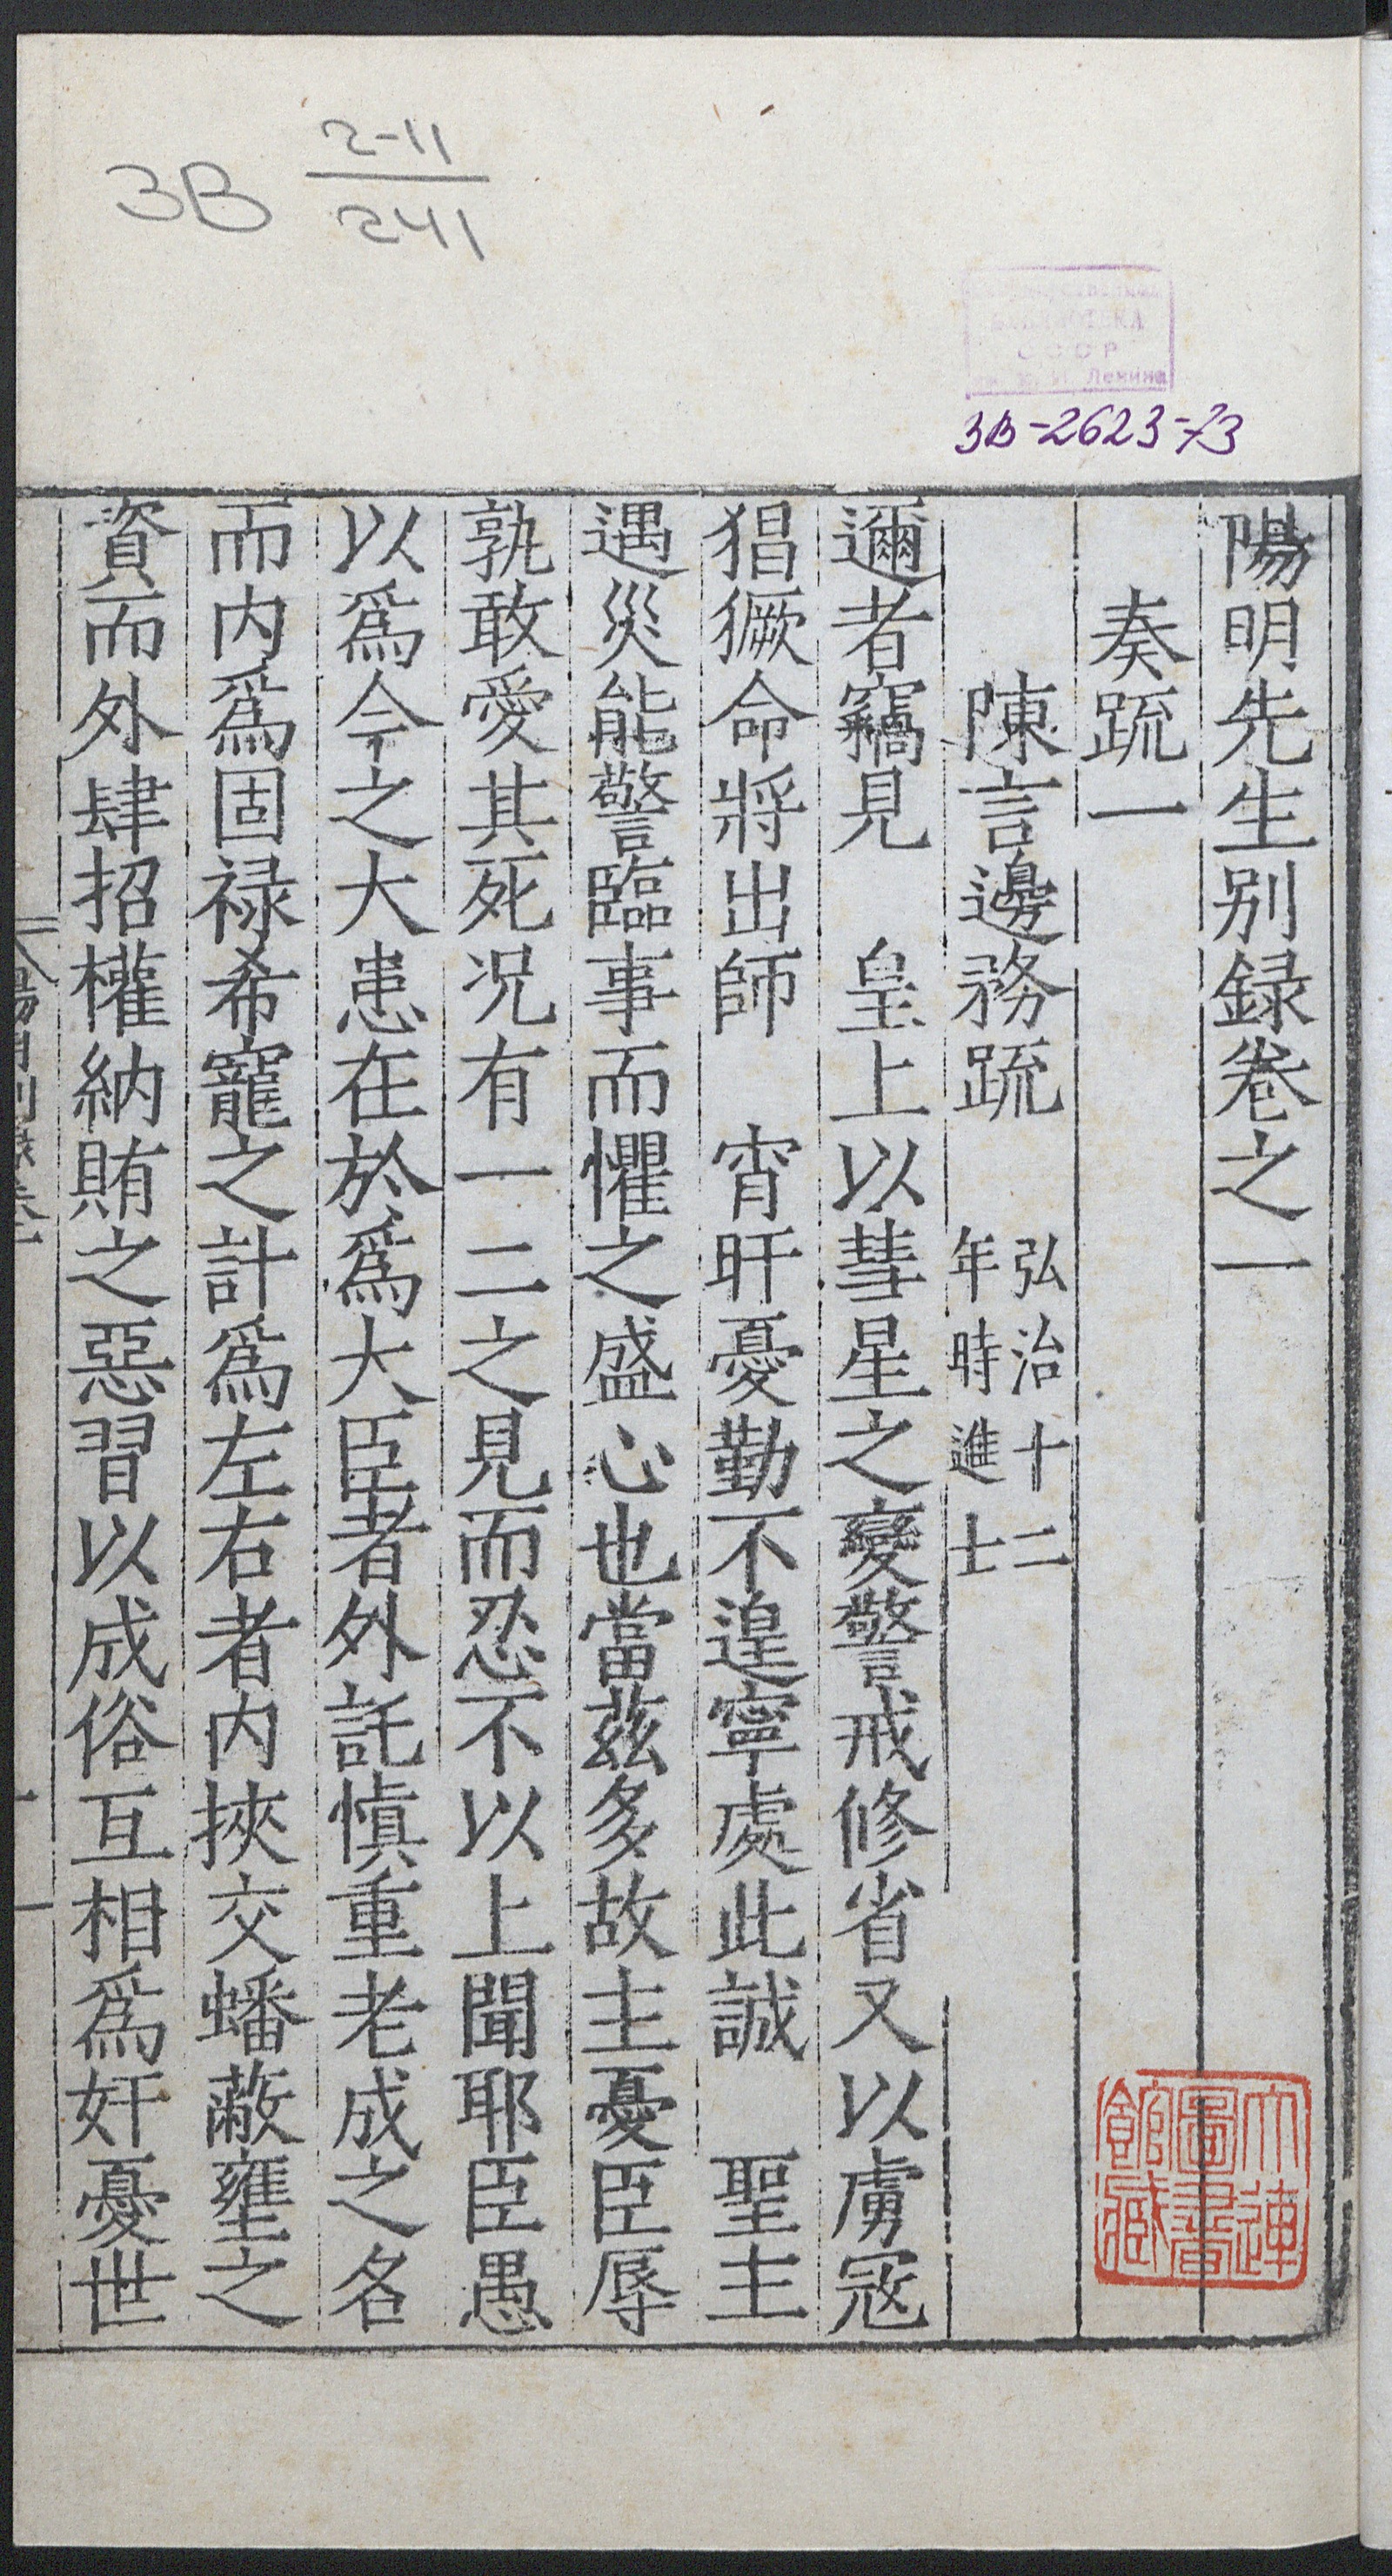 3В 2-11
241
БИБЛИОТЕКА
СССР
Ленина
3В-2623-73
陽明先生别録卷之一
奏疏一
陳言邊務疏 弘治十二
年時進士
邇者竊見 皇上以彗星之變警戒修省又以虜寇
猖獗命將出師 宵旰憂勤不遑寧處此誠 聖主
遇災能警臨事而懼之盛心也當茲多故主憂臣辱
孰敢愛其死况有一二之見而忍不以上聞耶臣愚
以爲今之大患在於爲大臣者外託慎重老成之名
而内爲固禄希寵之計爲左右者内挾交蟠蔽壅之
資而外肆招權納賄之惡習以成俗互相爲奸憂世
大連
圖書
館藏